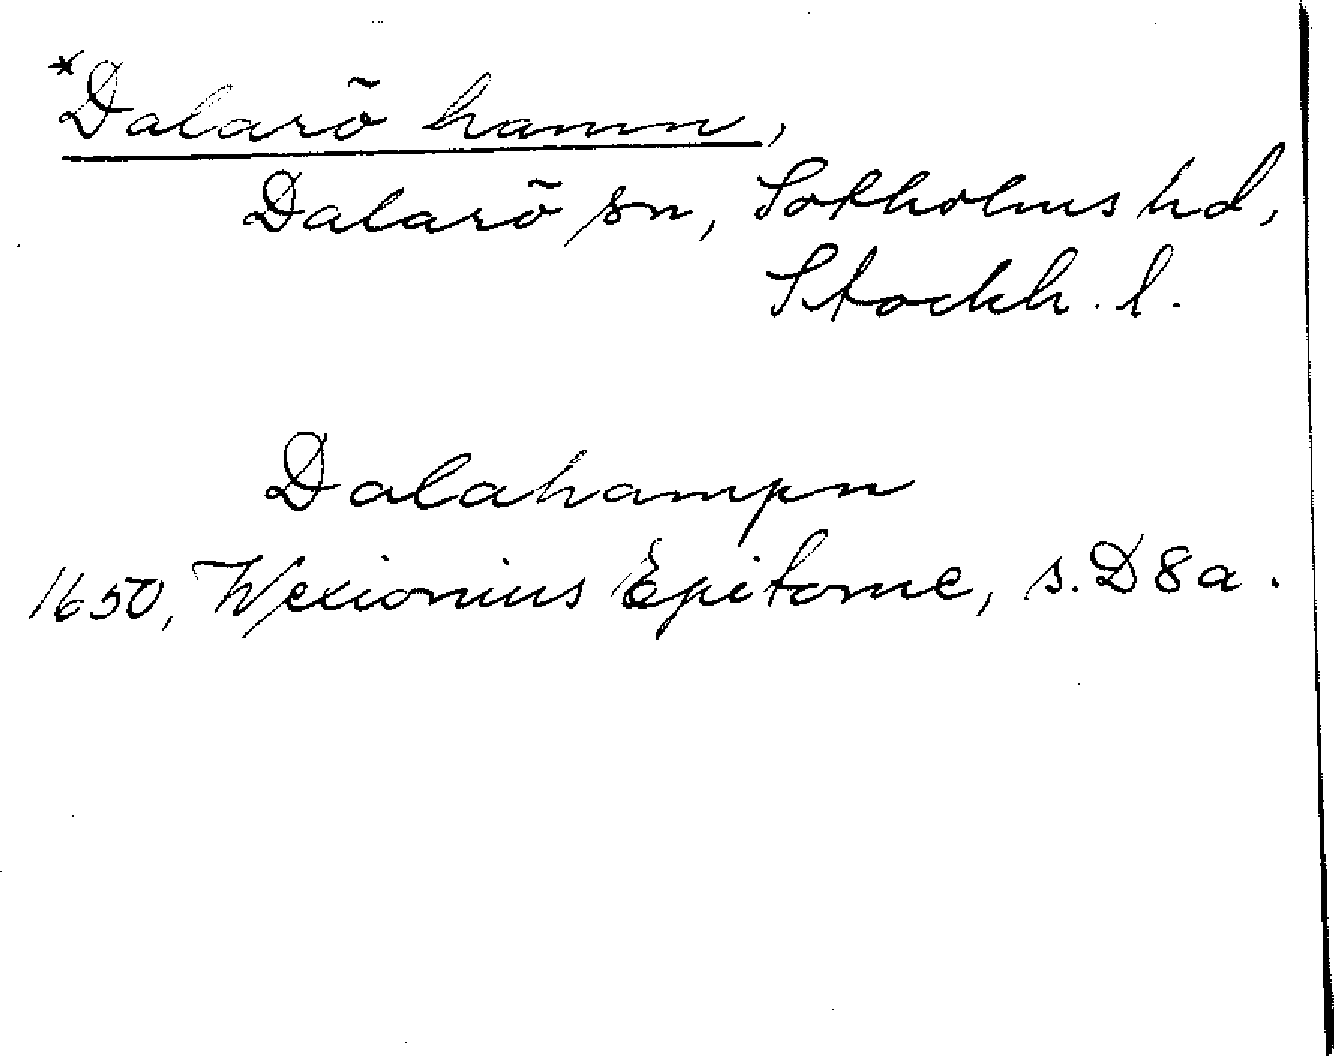 *Dalarö hamn,
Dalarö sn, Sotholms hd,
Stockh. l.
Dalahampn
1650, Wexionius Epitome, s. D8a.